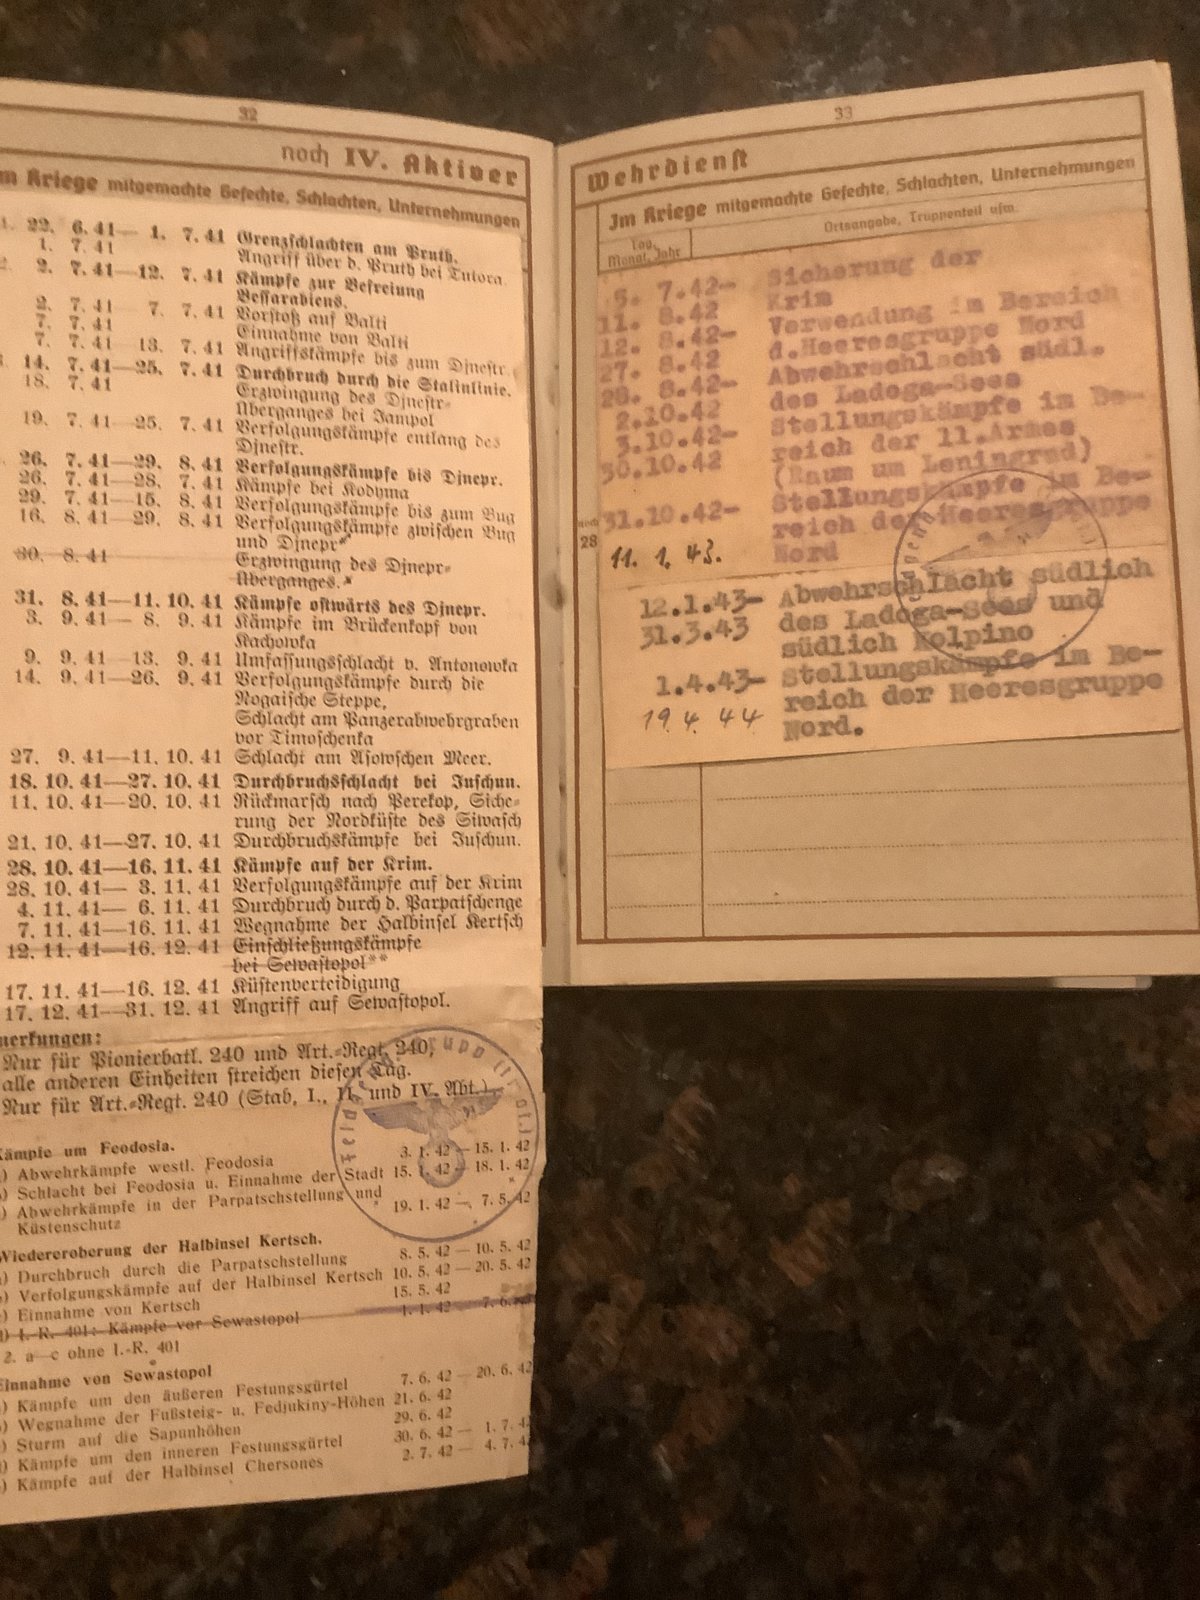 32
noch IV. Aktiver
Im Kriege mitgemachte Gefechte, Schlachten, Unternehmungen
1. 22. 6. 41— 1. 7. 41 Grenzschlachten am Pruth.
1. 7. 41 Angriff über d. Pruth bei Tutora.
2. 2. 7. 41—12. 7. 41 Kämpfe zur Befreiung
Bessarabiens.
2. 7. 41 7. 7. 41 Vorstoß auf Balti
7. 7. 41 Einnahme von Balti
7. 7. 41 13. 7. 41 Angriffskämpfe bis zum Djnestr.
3. 14. 7. 41—25. 7. 41 Durchbruch durch die Stalinlinie.
18. 7. 41 Erzwingung des Djnestr-
Überganges bei Jampol
19. 7. 41—25. 7. 41 Verfolgungskämpfe entlang des
Djnestr.
26. 7. 41—29. 8. 41 Verfolgungskämpfe bis Djnepr.
26. 7. 41—28. 7. 41 Kämpfe bei Kodyma
29. 7. 41—15. 8. 41 Verfolgungskämpfe bis zum Bug
16. 8. 41—29. 8. 41 Verfolgungskämpfe zwischen Bug
und Djnepr*
30. 8. 41 Erzwingung des Djnepr-
Überganges.*
31. 8. 41—11. 10. 41 Kämpfe ostwärts des Djnepr.
3. 9. 41— 8. 9. 41 Kämpfe im Brückenkopf von
Kachowka
9. 9. 41—13. 9. 41 Umfassungsschlacht v. Antonowka
14. 9. 41—26. 9. 41 Verfolgungskämpfe durch die
Nogaische Steppe,
Schlacht am Panzerabwehrgraben
vor Timoschenka
27. 9. 41—11. 10. 41 Schlacht am Asowschen Meer.
18. 10. 41—27. 10. 41 Durchbruchsschlacht bei Juschun.
11. 10. 41—20. 10. 41 Rückmarsch nach Perekop, Siche-
rung der Nordküste des Siwasch
21. 10. 41—27. 10. 41 Durchbruchskämpfe bei Juschun.
28. 10. 41—16. 11. 41 Kämpfe auf der Krim.
28. 10. 41— 3. 11. 41 Verfolgungskämpfe auf der Krim
4. 11. 41— 6. 11. 41 Durchbruch durch d. Parpatschenge
7. 11. 41—16. 11. 41 Wegnahme der Halbinsel Kertsch
12. 11. 41—16. 12. 41 Einschließungskämpfe
bei Sewastopol**
17. 11. 41—16. 12. 41 Küstenverteidigung
17. 12. 41—31. 12. 41 Angriff auf Sewastopol.
merkungen:
Nur für Pionierbatl. 240 und Art.-Regt. 240,
alle anderen Einheiten streichen diesen Tag.
Nur für Art.-Regt. 240 (Stab, I., II. und IV. Abt.)
Kämpfe um Feodosia.
) Abwehrkämpfe westl. Feodosia 3. 1. 42 — 15. 1. 42
) Schlacht bei Feodosia u. Einnahme der Stadt 15. 1. 42 — 18. 1. 42
) Abwehrkämpfe in der Parpatschstellung und
Küstenschutz 19. 1. 42 — 7. 5. 42
Wiedereroberung der Halbinsel Kertsch.
) Durchbruch durch die Parpatschstellung 8. 5. 42 — 10. 5. 42
) Verfolgungskämpfe auf der Halbinsel Kertsch 10. 5. 42 — 20. 5. 42
) Einnahme von Kertsch 15. 5. 42
) I.-R. 401: Kämpfe vor Sewastopol 1. 1. 42 — 7. 6.
2. a—c ohne I.-R. 401
Einnahme von Sewastopol
) Kämpfe um den äußeren Festungsgürtel 7. 6. 42 — 20. 6. 42
) Wegnahme der Fußsteig- u. Fedjukiny-Höhen 21. 6. 42
) Sturm auf die Sapunhöhen 29. 6. 42
) Kämpfe um den inneren Festungsgürtel 30. 6. 42 — 1. 7. 4
) Kämpfe auf der Halbinsel Chersones 2. 7. 42 — 4. 7. 4
33
Wehrdienst
Im Kriege mitgemachte Gefechte, Schlachten, Unternehmungen
Tag, Monat, Jahr
Ortsangabe, Truppenteil usw.
5. 7.42- Sicherung der
11. 8.42 Krim
12. 8.42- Verwendung im Bereich
27. 8.42 d.Heeresgruppe Nord
28. 8.42- Abwehrschlacht südl.
2.10.42 des Ladoga-Sees
3.10.42- Stellungskämpfe im Be-
30.10.42 reich der 11.Armee
(Raum um Leningrad)
31.10.42- Stellungskämpfe im Be-
reich der Heeresgruppe
11. 1. 43. Nord
noch
28
12.1.43- Abwehrschlacht südlich
31.3.43 des Ladoga-Sees und
südlich Kolpino
1.4.43- Stellungskämpfe im Be-
19. 4. 44 reich der Heeresgruppe
Nord.